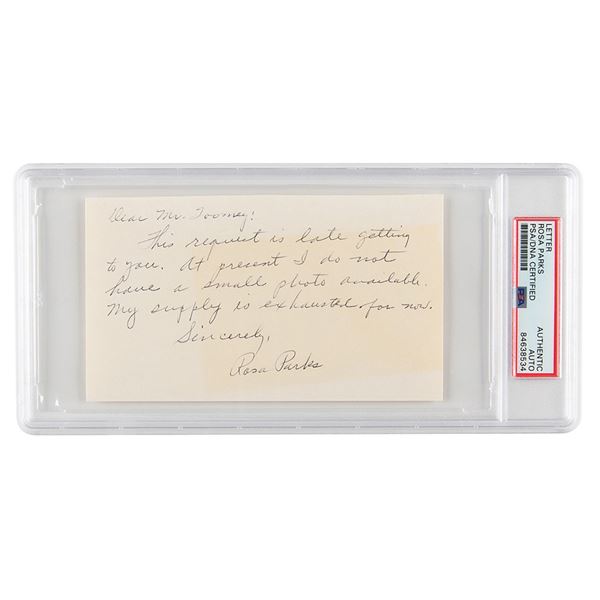 Dear Mr. Toomey:
This request is late getting
to you. At present I do not
have a small photo available.
My supply is exhausted for now.
Sincerely,
Rosa Parks
LETTER
ROSA PARKS
PSA/DNA CERTIFIED
PSA
AUTHENTIC
AUTO
84638534